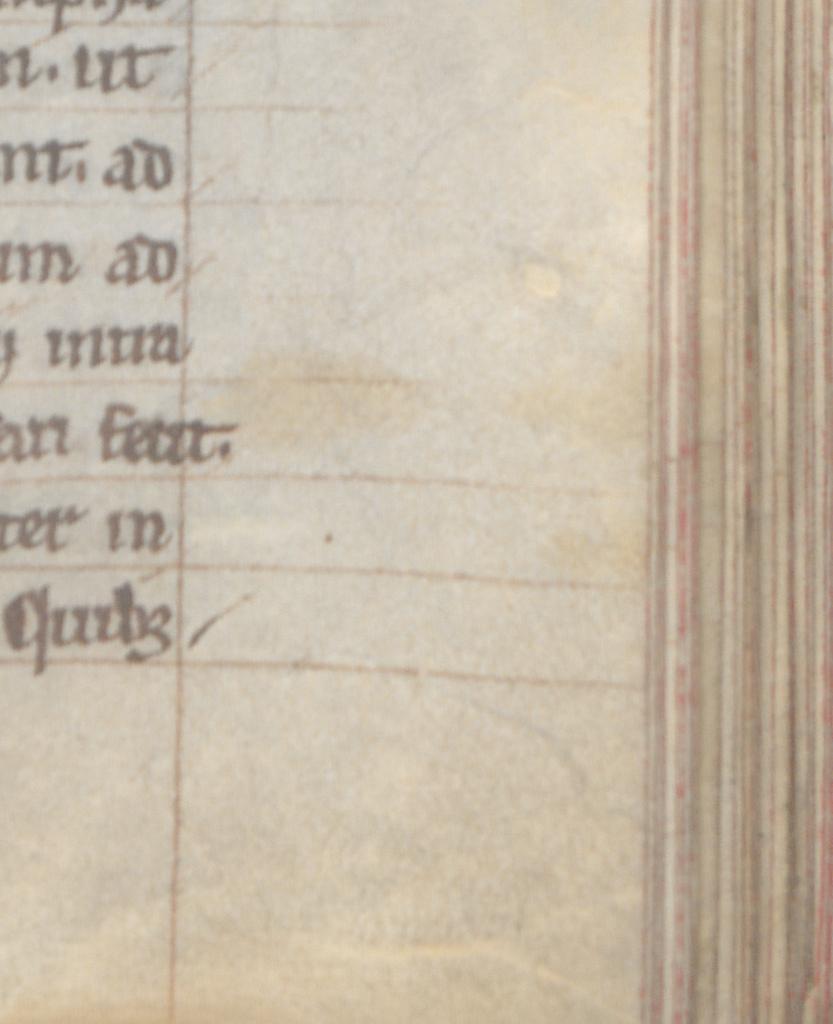 n. ut
nt. ad
um ad
intra
ari fecit.
ter in
Quibꝫ